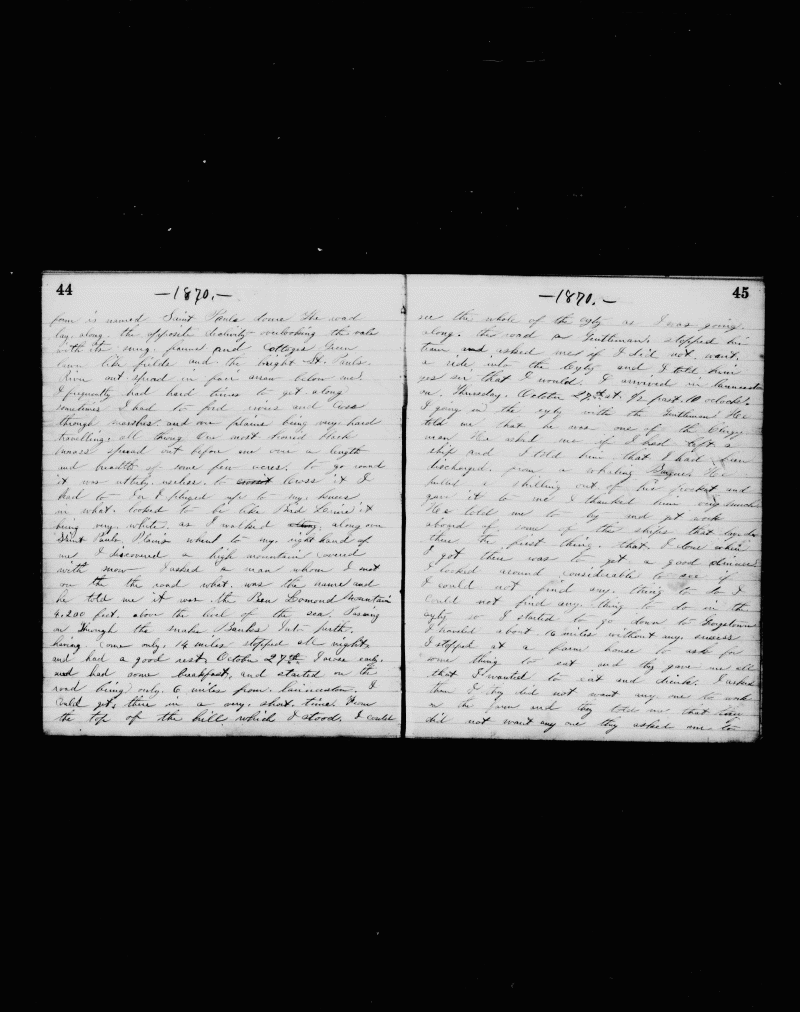 44
—1870.—
farm is named Saint Pauls the road
lay along. the opposite declivity overlooking the vale
with its farms and Cottages Green
lawn like fields and the bright St. Pauls.
River out spread in fair below me.
I frequently had hard times to get along
sometimes I had to ford rivers and cross
through marshes. and over plains being very hard
travelling. all thing the most
spread out before me were a length
and breadth of some few acres. to go round
it was utterly useless. to cross it I
had to for I pluged up to my knees
in what. looked to be like it
being very. white as I walked along on
Saint Pauls Plains went to my right hand of
me I discovered a high mountain covered
with snow I asked a man whom I met
on the the road what. was the name and
he told me it was the Ben Lomond Mountain
4.200 feet. above the level of the sea. Passing
on through the snake Banks Into perth.
having come only. 14 miles stopped all night.
and had a good rest, October 27th I arose early.
and had some breakfast, and started on the
road being only. 6 miles from. launceston. I
could get, there in a very. short. time. From
the top of the hill which I stood. I could
45
—1870.—
see the whole of the cyty as I was going.
along. the road a Gentleman. stopped his
team and asked me if I did not. want.
a ride into the Cyty and I told him
yes sir that I would. I arrived in Launceston
on. Thursday. October 27th at. ½ past. 10 oclock.
I going in the cyty with the Gentleman He
told me that he was one of the Clergy
man He asked me if I had left a
ship and I told him that I had been
discharged. from a whaling He
pulled a shilling out of his pocket and
gave it to me I thanked him very much
He told me to try and get work
aboard of some of the ships that lay in
there the first thing. that. I done when
I got there was to get a good dinner
I looked around considerable to see if
I could not find any. thing to do I
could not find any. thing to do in the
cyty so I started to go down to Gorgetown
I traveled about. 10 miles without any. success
I stopped at a farm house to ask for
some thing to eat and they gave me all
that I wanted to eat and drink. I asked
them if they did not want any one to work
on the farm and they told me that they
did not want any one they asked me to